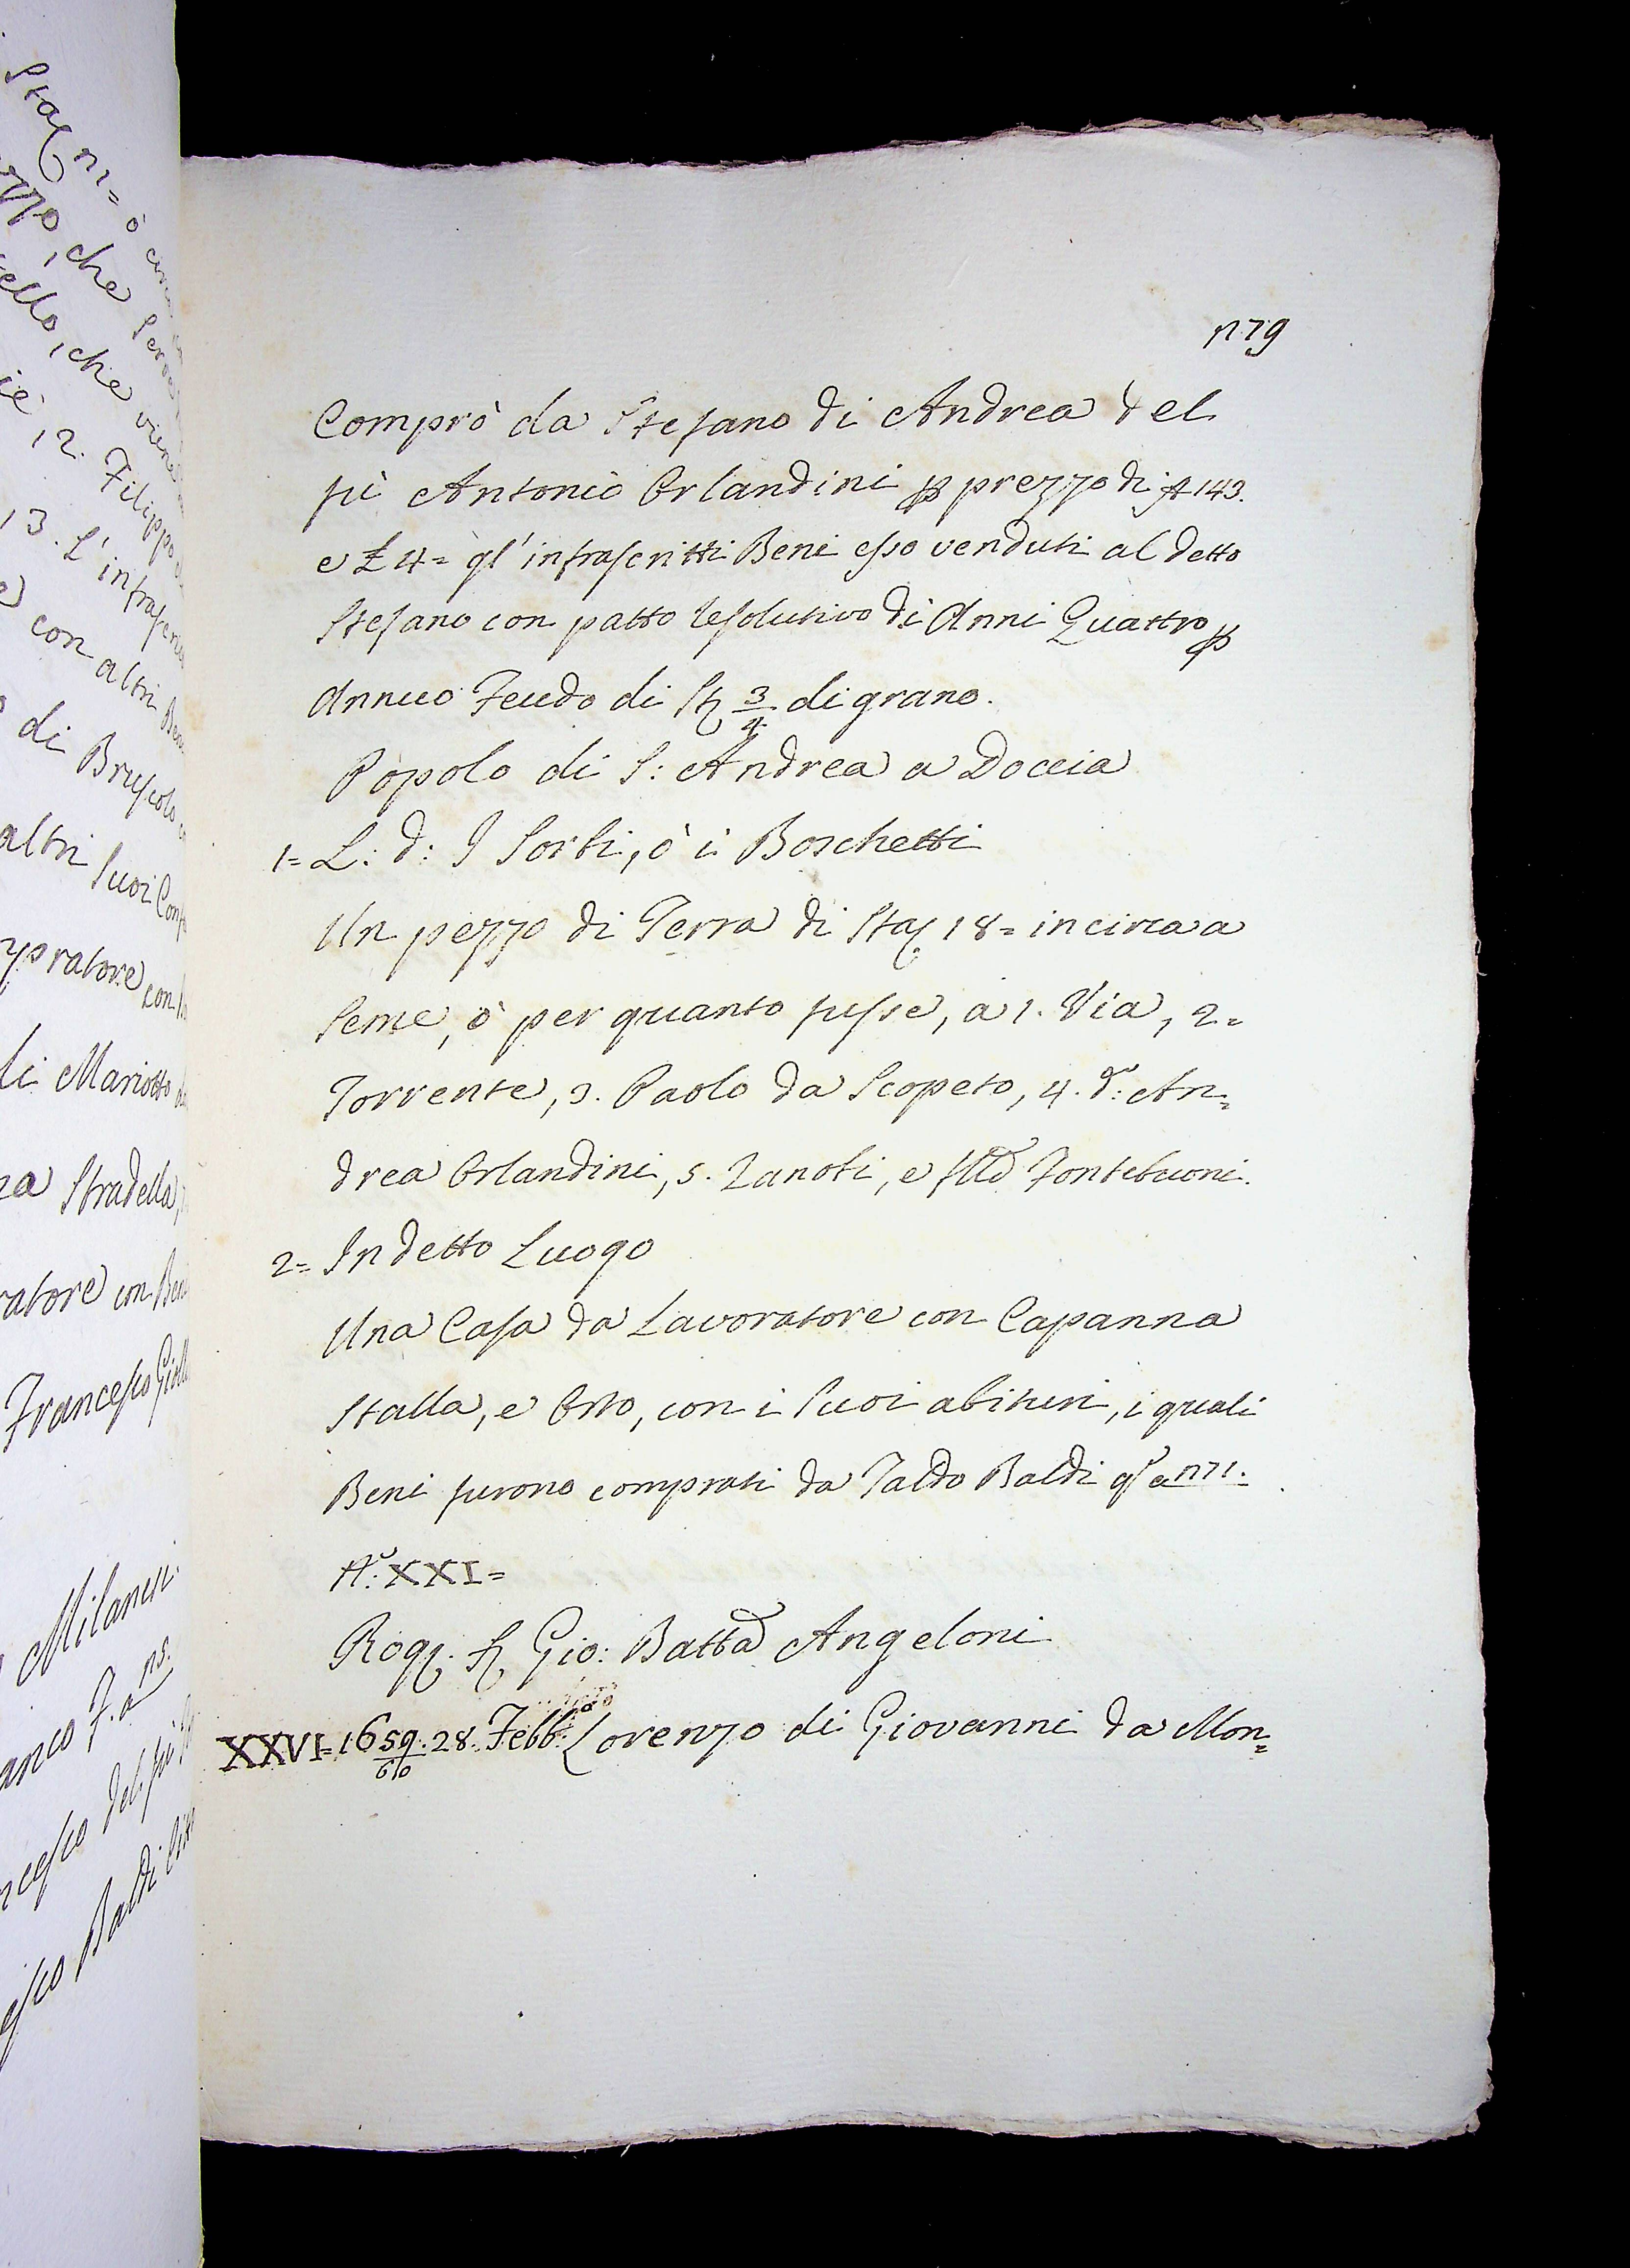 n79
Comprò da Stefano di Andrea del
fù Antonio Orlandini ꝑ prezzo di 143.
e £ 4= gl'infrascritti Beni esso venduti al detto
Stefano con patto resolutivo di Anni Quattro ꝑ
Annuo Feudo di St 3/4 di grano.
Popolo di S: Andrea a Doccia
1= L: d: I Sorbi, ò i Boschetti
Un pezzo di Terra di Sta 18= in circa a
Seme, ò per quanto fusse, a 1. Via, 2=
Torrente, 3. Paolo da Scopeto, 4. d:° An=
drea Orlandini, 5. Zanobi, e Fontebuoni.
2= In detto Luogo
Una Casa da Lavoratore con Capanna
Stalla, e Orto, con i Suoi abituri, i quali
Beni furono comprati da Taldo Baldi a n71.
A.° XXI=
Rog. S Gio: Batta Angeloni
XXVI= 1659/60. 28. Febb.° Lorenzo di Giovanni da Mon=
Sta n1= ò
che Serve
che viene
12. Filippo
13. L'infrascri
con altri Beni
di Bruscolo
altri Suoi Conf
con
Mariotto
Stradella,
con Beni
Francesco
Milanesi.
n5.
del fù
Baldi